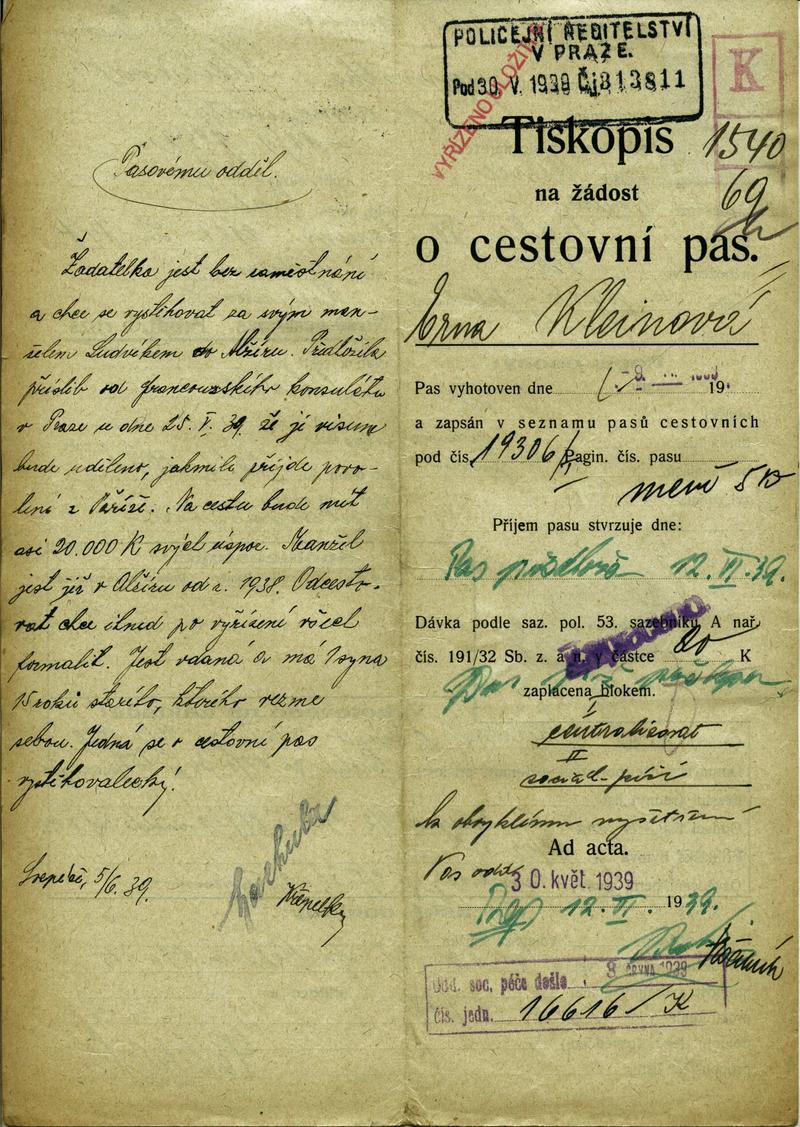 Pasovému odděl.
Žadatelka jest bez zaměstnání
a chce se vystěhovat za svým man-
želem Ludvíkem do Alžíru. Předložila
příslib od francouzského konsulátu
v Praze ze dne 25. V. 39. že jí visum
bude uděleno, jakmile přijde povo-
lení z Paříže. Na cestu bude mít
asi 20.000 K svých úspor. Manžel
jest již v Alžíru od r. 1938. Odcesto-
vat chce ihned po vyřízení všech
formalit. Jest vdaná a má 1 syna
15 roků starého, kterého vezme
sebou. Jedná se o cestovní pas
vystěhovalecký.
5/6. 39.
POLICEJNÍ ŘEDITELSTVÍ
V PRAZE.
Pod 30. V. 1939 Čj 313811
VYŘÍZENO ULOŽIT
K
Tiskopis 1540
na žádost 69
o cestovní pas.
Erna Kleinová
Pas vyhotoven dne 19
a zapsán v seznamu pasů cestovních
pod čís. 19306/ Pagin. čís. pasu
Příjem pasu stvrzuje dne:
Pas 12. VI. 39.
Dávka podle saz. pol. 53. sazebníku A nař.
čís. 191/32 Sb. z. a n. v částce 20 K
zaplacena blokem.
I
centralisovat
II
social. péči
K obvyklému vyšetření
Ad acta.
Pas. odd.
30. květ. 1939
12. VI. 1939.
Odd. soc. péče došlo 8 ČRVNA 1939
čís. jedn. 16616/K